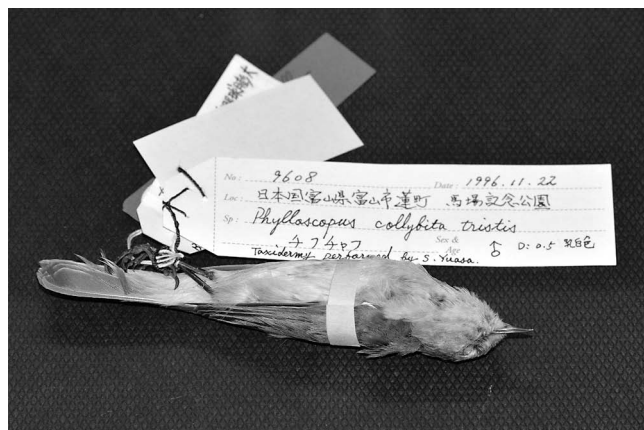 No: 9608 Date: 1996.11.22
Loc: 日本国富山県富山市蓮町 馬場記念公園
Sp: Phylloscopus collybita tristis
チフチャフ Sex & Age ♂ D: 0.5 乳白色
Taxidermy performed by S. Yuasa.